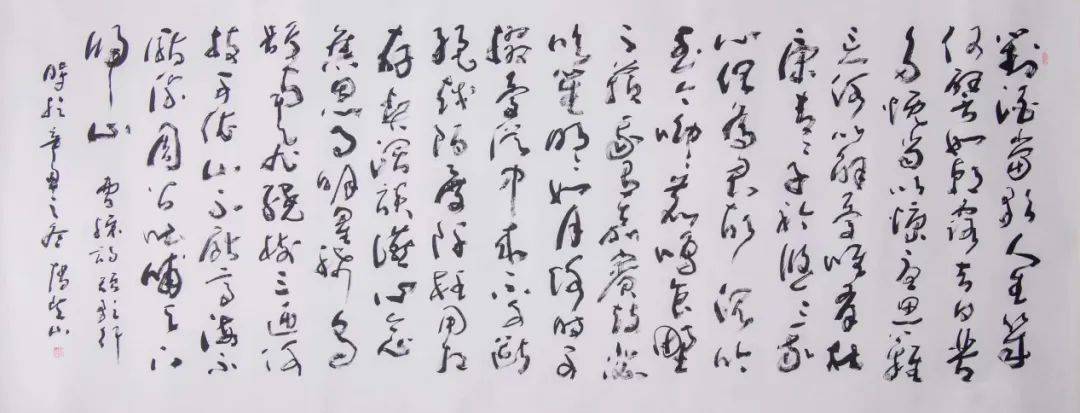 對酒當歌人生幾
何譬如朝露去日苦
多慨當以慷憂思難
忘何以解憂唯有杜
康青々子衿悠々我
心但為君故沉吟
至今呦々鹿鳴食野
之蘋我有嘉賓鼓瑟
吹笙明々如月何時可
掇憂從中來不可斷
絕越陌度阡枉用相
存契闊談讌心念
舊恩月明星稀烏
鵲南飛繞樹三匝何
枝可依山不厭高海不
厭深周公吐哺天下
歸心 曹操詩短歌行
時於辛丑之冬